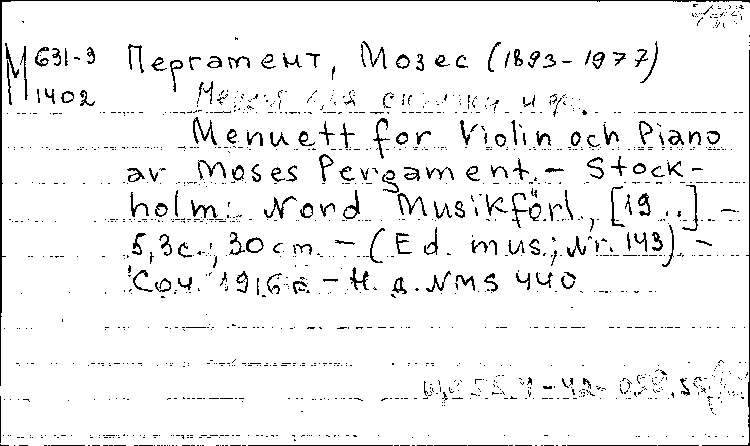 М 631-9
1402
Пергамент, Мозес (1893-1977)
для скрипки и ф.
Menuett for Violin och Piano
av Moses Pergament. – Stock-
holm: Nord Musikförl., [19..] –
5,3 с.; 30 cm. – (Ed. mus.; Nr. 143) –
Соч. 1916 г – Н. д. NMS 440